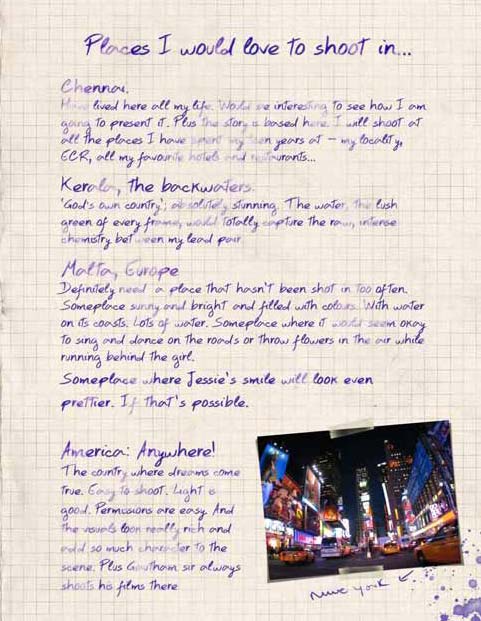 Places I would love to shoot in...
Chennai.
Have lived here all my life. Would be interesting to see how I am
going to present it. Plus the story is based here. I will shoot at
all the places I have spent my teen years at - my locality,
ECR, all my favourite hotels and restaurants...
Kerala, the backwaters.
'God's own country'; absolutely stunning. The water, the lush
green of every frame, would totally capture the raw, intense
chemistry between my lead pair.
Malta, Europe
Definitely need a place that hasn't been shot in too often.
Someplace sunny and bright and filled with colours. With water
on its coasts. Lots of water. Someplace where it would seem okay
to sing and dance on the roads or throw flowers in the air while
running behind the girl.
Someplace where Jessie's smile will look even
prettier. If that's possible.
America: Anywhere!
The country where dreams come
true. Easy to shoot. Light is
good. Permissions are easy. And
the visuals look really rich and
add so much character to the
scene. Plus Goutham sir always
shoots his films there
New York